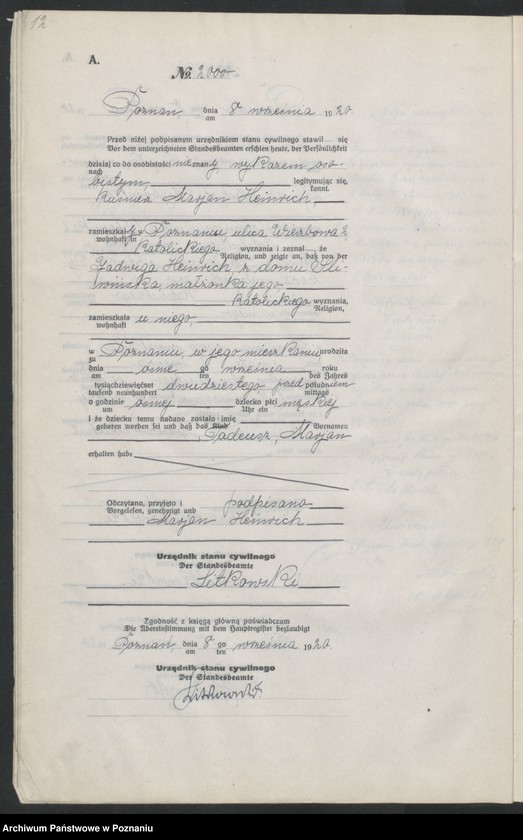 12
A.
№ 2000
Poznań, dnia 8 września 1920
am
Przed niżej podpisanym urzędnikiem stanu cywilnego stawił się
Vor dem unterzeichneten Standesbeamten erschien heute, der Persönlichkeit
dzisiaj co do osobistości nieznany, wykazem oso-
nach
bistym, legitymując się,
kannt.
kuśnierz Marjan Heinrich,
zamieszkały w Poznaniu, ulica Wierzbowa
wohnhaft in
Katolickiego wyznania i zeznał, że
Religion, und zeigte an, daß von der
Jadwiga Heinrich z domu Śli-
wińska, małżonka jego
Katolickiego wyznania,
Religion,
zamieszkała u niego,
wohnhaft
w Poznaniu, w jego mieszkaniu urodziła
zu
dnia ósme go września roku
am ten des Jahres
tysiącdziewięćset dwudziestego przed południem
tausend neunhundert mittags
o godzinie ósmej dziecko płci męskiej
um Uhr ein
i że dziecku temu nadane zostało imię
geboren worden sei und daß das Kind Vornamen
Tadeusz, Marjan
erhalten habe
Odczytano, przyjęto i podpisano
Vorgelesen, genehmigt und
Marjan Heinrich
Urzędnik stanu cywilnego
Der Standesbeamte
Litkowski
Zgodność z księgą główną poświadczam
Die Übereinstimmung mit dem Hauptregister beglaubigt
Poznań, dnia 8 go września 1920
am ten
Urzędnik stanu cywilnego
Der Standesbeamte
Litkowski
Archiwum Państwowe w Poznaniu